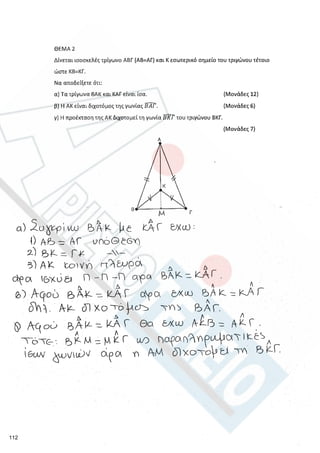 ΘΕΜΑ 2
Δίνεται ισοσκελές τρίγωνο ΑΒΓ (ΑΒ=ΑΓ) και Κ εσωτερικό σημείο του τριγώνου τέτοιο
ώστε ΚΒ=ΚΓ.
Να αποδείξετε ότι:
α) Τα τρίγωνα ΒΑΚ και ΚΑΓ είναι ίσα. (Μονάδες 12)
β) Η ΑΚ είναι διχοτόμος της γωνίας ΒΑΓ. (Μονάδες 6)
γ) Η προέκταση της ΑΚ διχοτομεί τη γωνία ΒΚΓ του τριγώνου ΒΚΓ.
(Μονάδες 7)
Α
Κ
Β Μ Γ
α) Συγκρίνω ΒΑΚ με ΚΑΓ έχω:
1) ΑΒ = ΑΓ υπόθεση
2) ΒΚ = ΓΚ -\\-
3) ΑΚ κοινή πλευρά
άρα ισχύει Π-Π-Π άρα ΒΑΚ = ΚΑΓ.
β) Αφού ΒΑΚ = ΚΑΓ άρα έχω ΒΑΚ = ΚΑΓ
δηλ. ΑΚ διχοτόμος της ΒΑΓ.
γ) Αφού ΒΑΚ = ΚΑΓ θα έχω ΑΚΒ = ΑΚΓ.
Τότε: ΒΚΜ = ΜΚΓ ως παραπληρωματικές
ίσων γωνιών άρα η ΑΜ διχοτομεί τη ΒΚΓ.
112